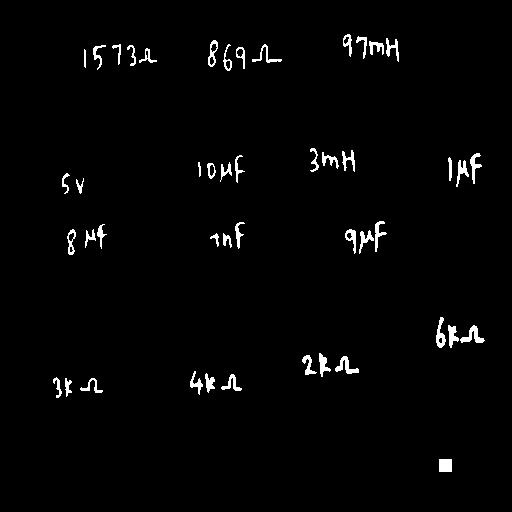 1573Ω 869Ω 97mH
5v 10μF 3mH 1μF
8μf nF 9μF
6kΩ
3kΩ 4kΩ 2kΩ